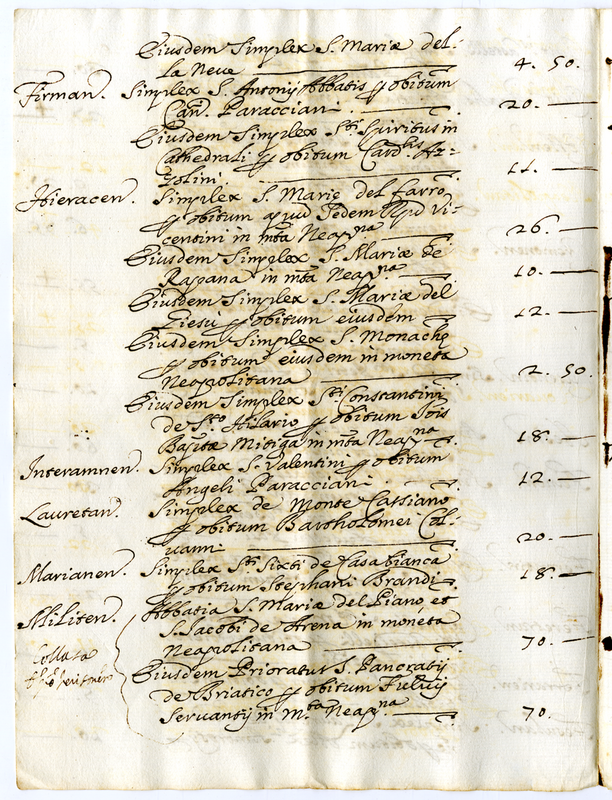 Eiusdem Simplex S. Mariæ del-
la Neve 4. 50.
Firman. Simplex S. Antonij Abbatis p obitum
Can. Paracciani 20.
Eiusdem Simplex Sti Spiritus in
Cathedrali p obitum Cardlis Az-
zolini 11.
Hieracen. Simplex S. Marię del farro
p obitum apud Sedem Apd Vi-
centini in mta Neapna 26.
Eiusdem Simplex S. Mariæ de
Raspana in mta Neapna 10.
Eiusdem Simplex S. Mariæ del
Giesù p obitum eiusdem 12.
Eiusdem Simplex S. Monachę
p obitum eiusdem in moneta
Neapolitana 2. 50.
Eiusdem Simplex Sti Constantini
de Sto Hilario p obitum Io:is
Baptæ Mitiga in mta Neapna 18.
Interamnen. Simplex S. Valentini p obitum
Angeli Paracciani 12.
Lauretan. Simplex de Monte Cassiano
p obitum Bartholomei Col-
vanni 20.
Marianen. Simplex Sti Sixti de Casabianca
p obitum Stephani Brandi 18.
Militen. Abbatia S. Mariæ del Piano, et
S. Jacobi de Arena in moneta
Neapolitana 70.
Collata
Eiusdem Prioratus S. Pancratij
de Briatico p obitum Fulvij
Servantij in mta Neapna 70.